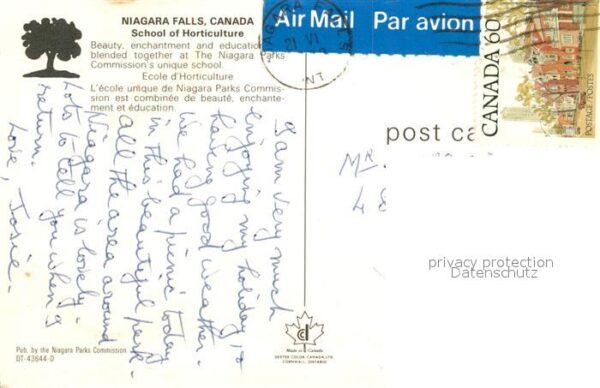 NIAGARA FALLS, CANADA
School of Horticulture
Beauty, enchantment and education
blended together at The Niagara Parks
Commission's unique school.
Ecole d'Horticulture
L'école unique de Niagara Parks Commis-
sion est combinée de beauté, enchante-
ment et éducation.
Air Mail Par avion
NIAGARA FALLS
21 VI
ONT
CANADA 60
POSTAGE/POSTES
post ca
Mr.
4
I am very much
enjoying my holiday,
having good weather.
We had a picnic today
in this beautiful park.
all the area around
Niagara is lovely.
Lots to tell you when I
return.
Love, Josie.
privacy protection
Datenschutz
Made in Canada
DEXTER COLOR CANADA LTD.
CORNWALL, ONTARIO
Pub. by the Niagara Parks Commission
DT-43644-D